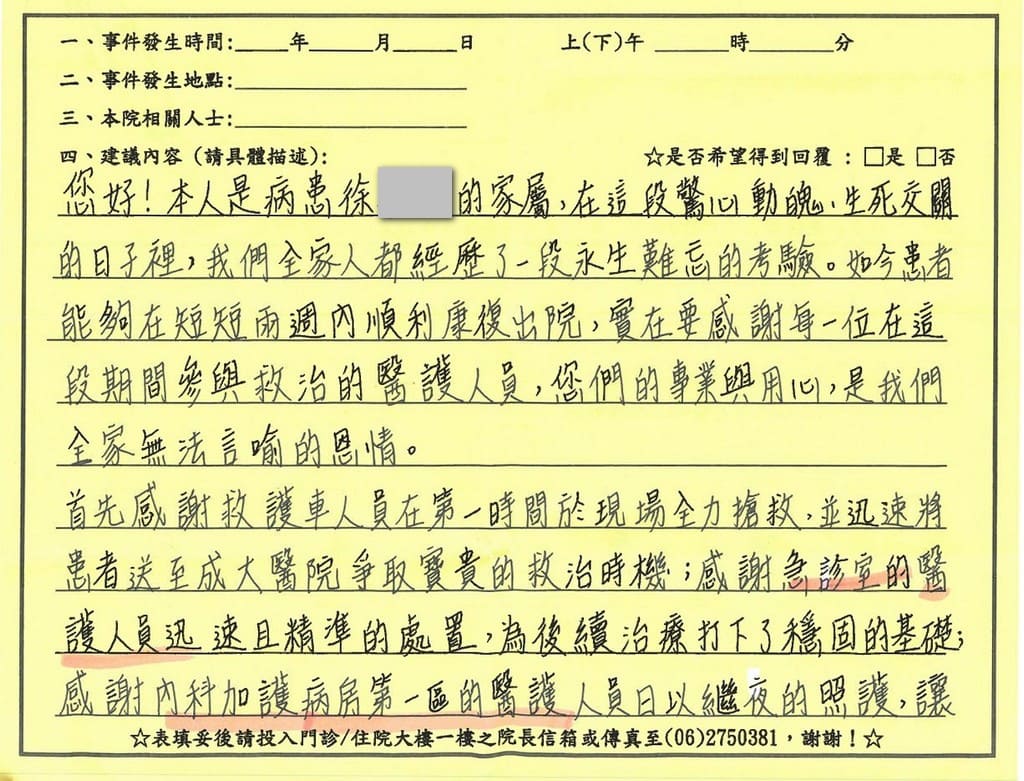 一、事件發生時間:_____年______月______日 上(下)午 _______時________分
二、事件發生地點:______________________
三、本院相關人士:______________________
四、建議內容(請具體描述): ☆是否希望得到回覆：□是 □否
您好!本人是病患徐 的家屬,在這段驚心動魄、生死交關
的日子裡,我們全家人都經歷了一段永生難忘的考驗。如今患者
能夠在短短兩週內順利康復出院,實在要感謝每一位在這
段期間參與救治的醫護人員,您們的專業與用心,是我們
全家無法言喻的恩情。
首先感謝救護車人員在第一時間於現場全力搶救,並迅速將
患者送至成大醫院爭取寶貴的救治時機;感謝急診室的醫
護人員迅速且精準的處置,為後續治療打下了穩固的基礎;
感謝內科加護病房第一區的醫護人員日以繼夜的照護,讓
☆表填妥後請投入門診/住院大樓一樓之院長信箱或傳真至(06)2750381，謝謝！☆